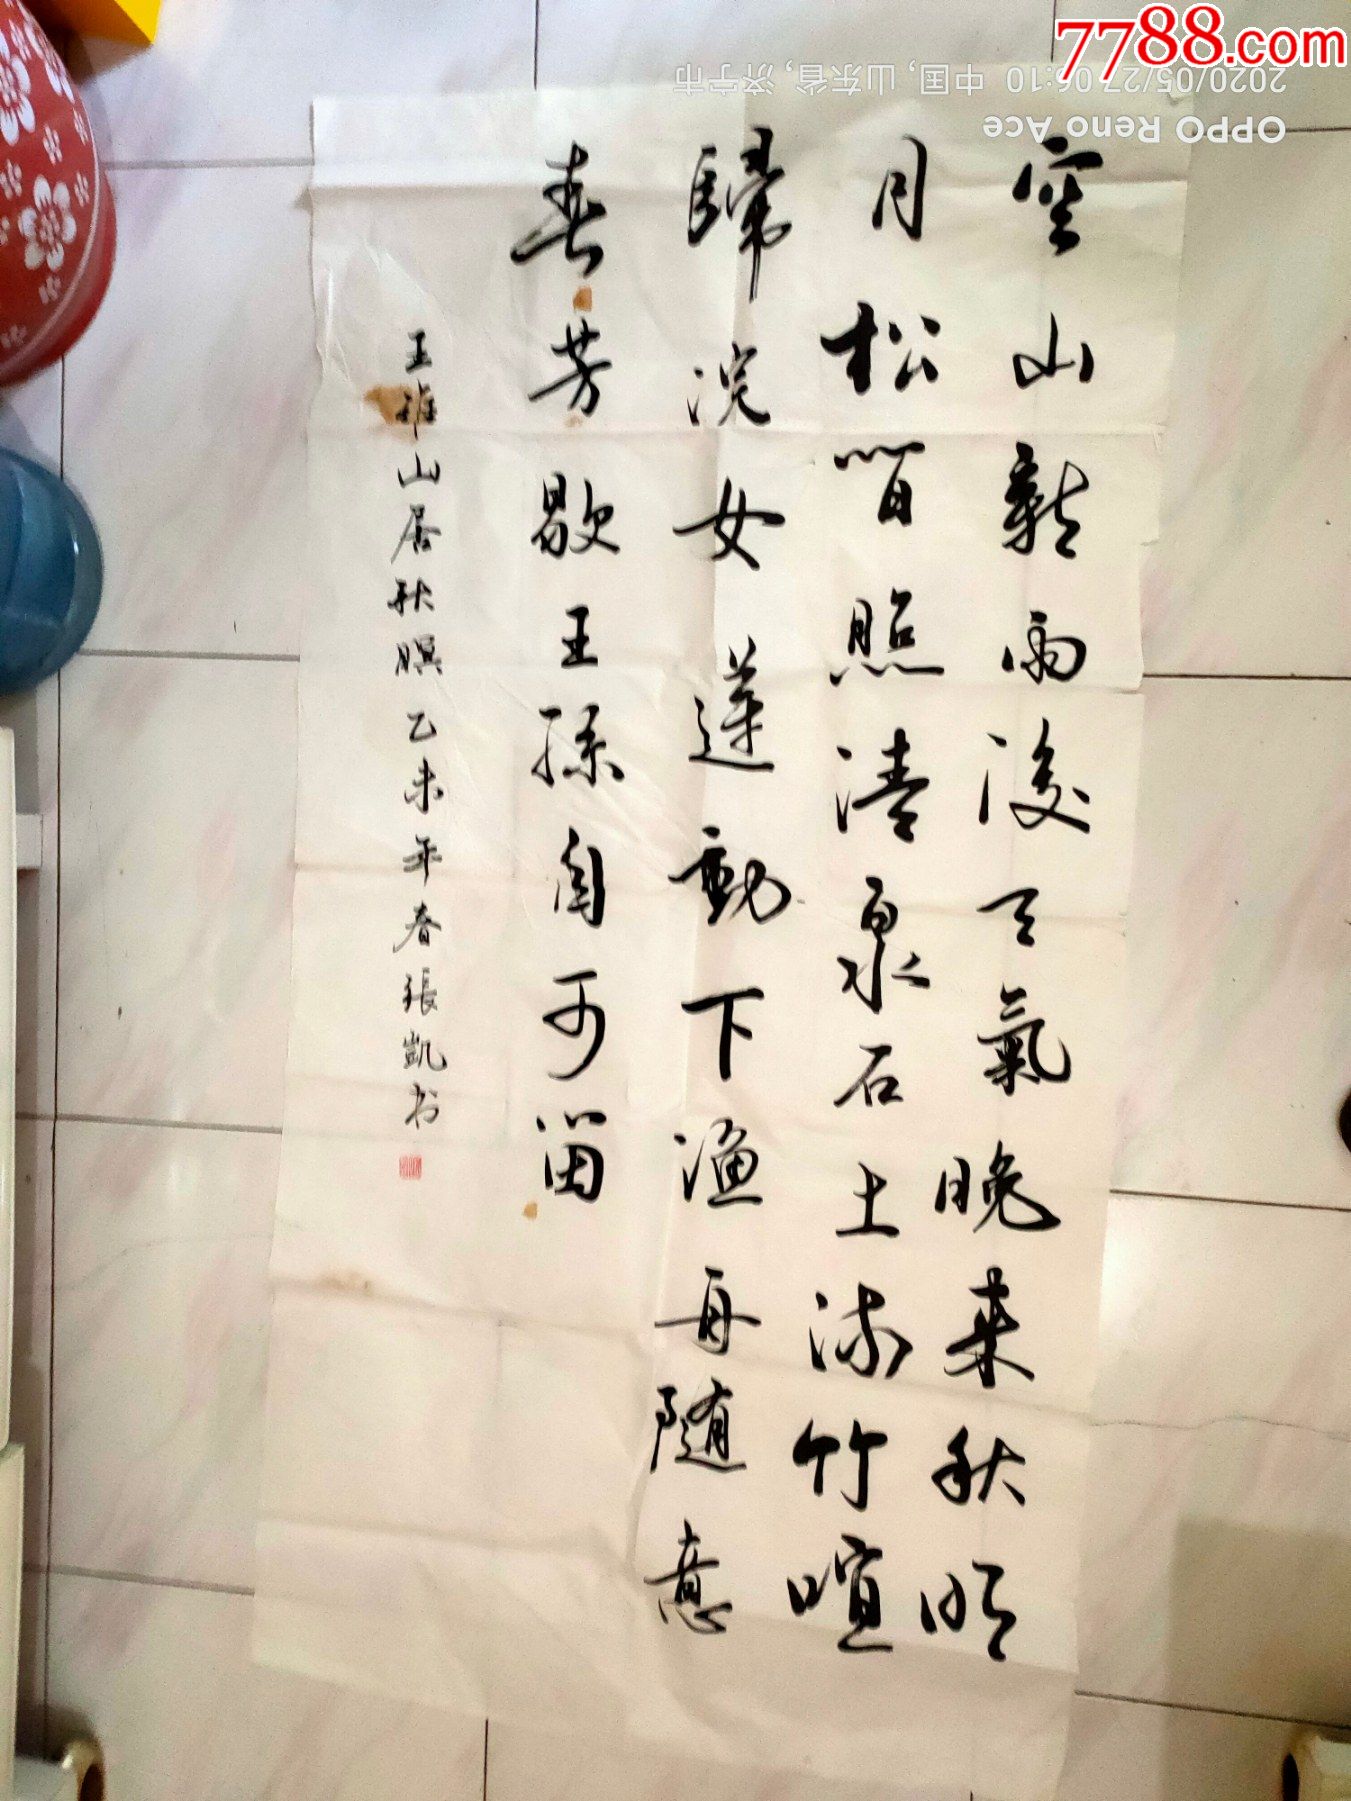 7788.com
OPPO Reno Ace
2020/05/27 06:10 中国, 山东省, 济宁市
空山新雨後天氣晚来秋明
月松間照清泉石上流竹喧
歸浣女蓮動下渔舟随意
春芳歇王孫自可留
王維山居秋暝 乙未年春張凱书